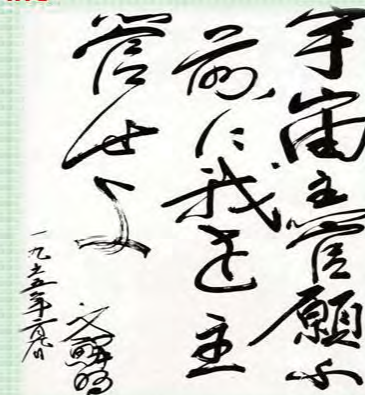 宇宙主管願ふ
前に我を主
管せよ
一九七五年二月九日
文鮮明